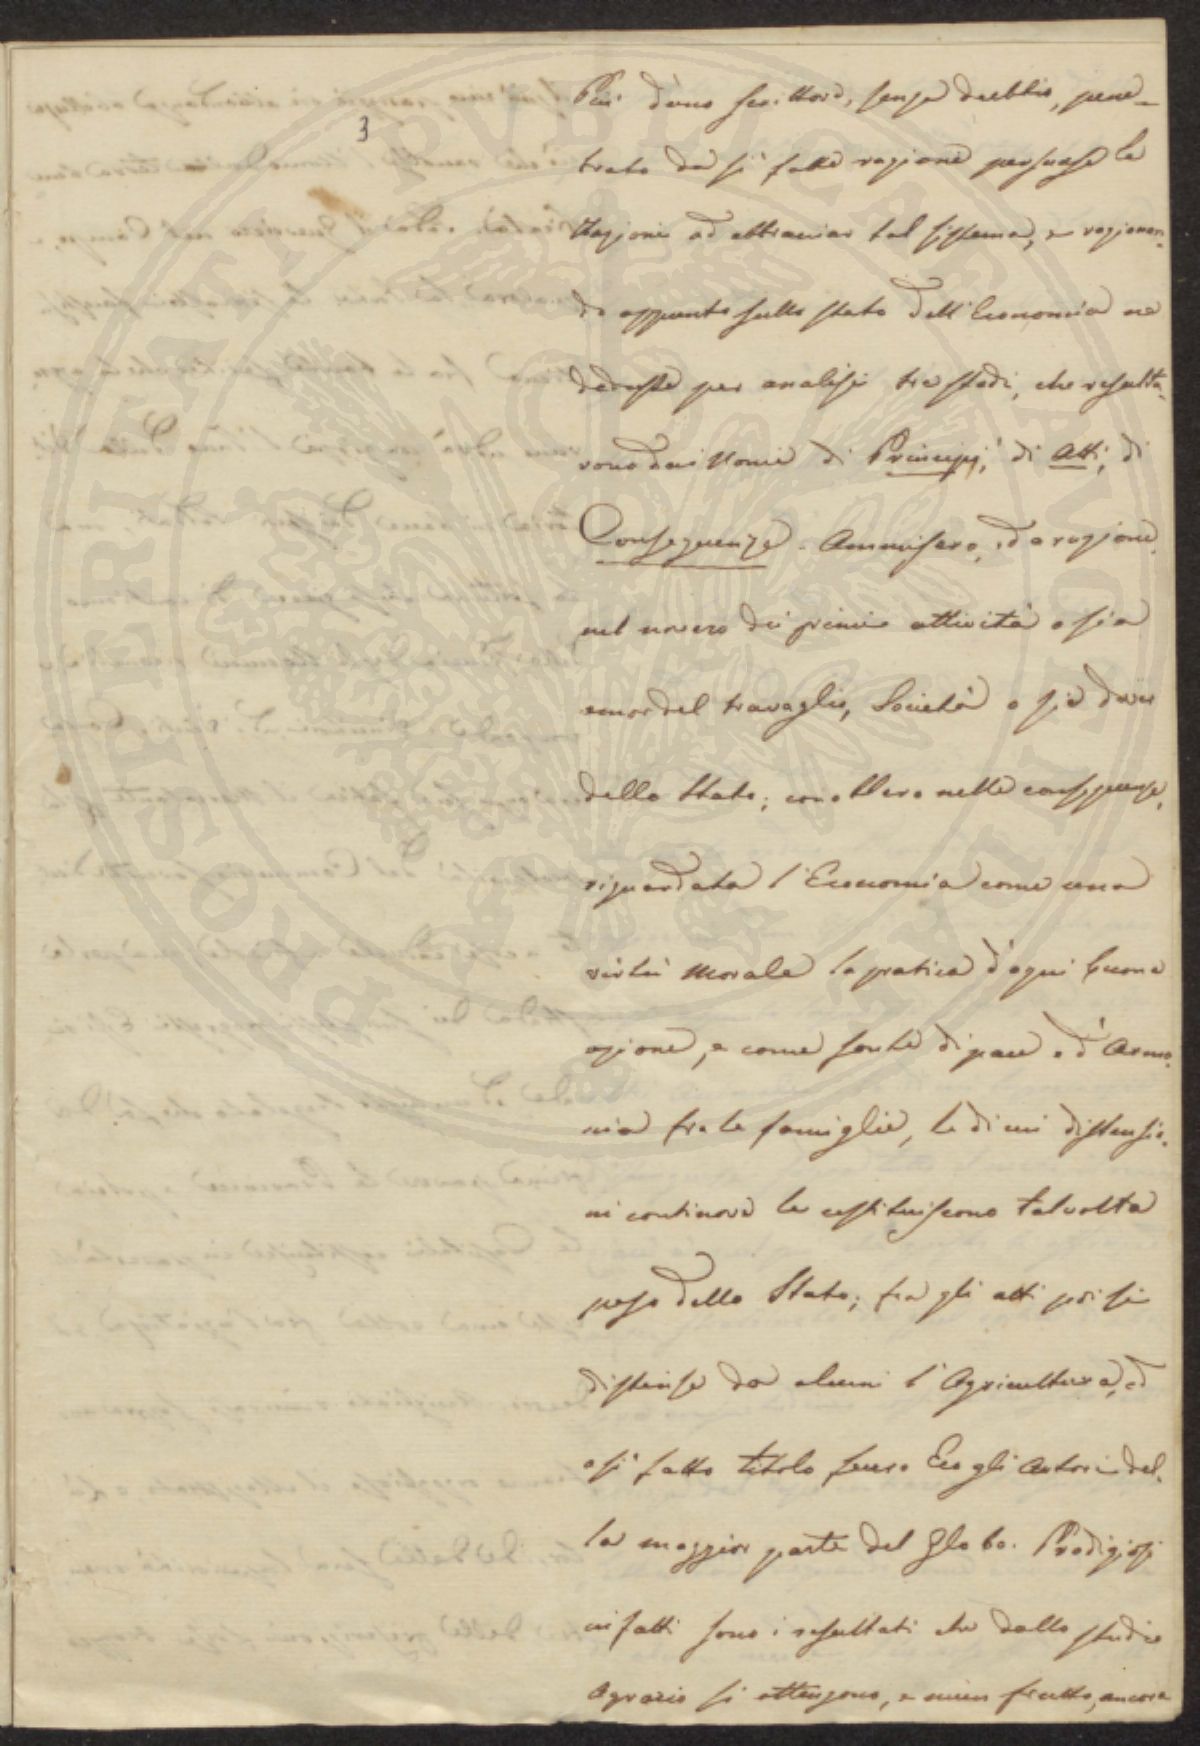 3
Più d'uno scrittore, senza dubbio, pene-
trato da sì fatte ragioni persuase le
Nazioni ad abbracciar tal sistema, e ragionan-
do appunto sullo stato dell'Economia ne
dedusse per analisi tre stadi, che risulta-
rono dai nomi di Principj, di Atti, di
Conseguenze. Ammisero, ed a ragione,
nel novero dei primi attività ossia
amor del travaglio, Società o sia dover
dello Stato; nelle conseguenze,
riguardata l'Economia come una
virtù morale la pratica d'ogni buona
azione, e come fonte di pace e d'Armo-
nia fra le famiglie, le di cui dissensio-
ni continove le costituiscono talvolta
peso dello Stato; fra gli atti poi si
distinse da alcuni l'Agricoltura, ed
a sì fatto titolo fecero Eco gli Autori del-
la maggior parte del Globo. Prodigiosi
infatti sono i resultati che dallo studio
Agrario si ottengono, e niun frutto, ancora
PROSPERITATI PUBLICAE